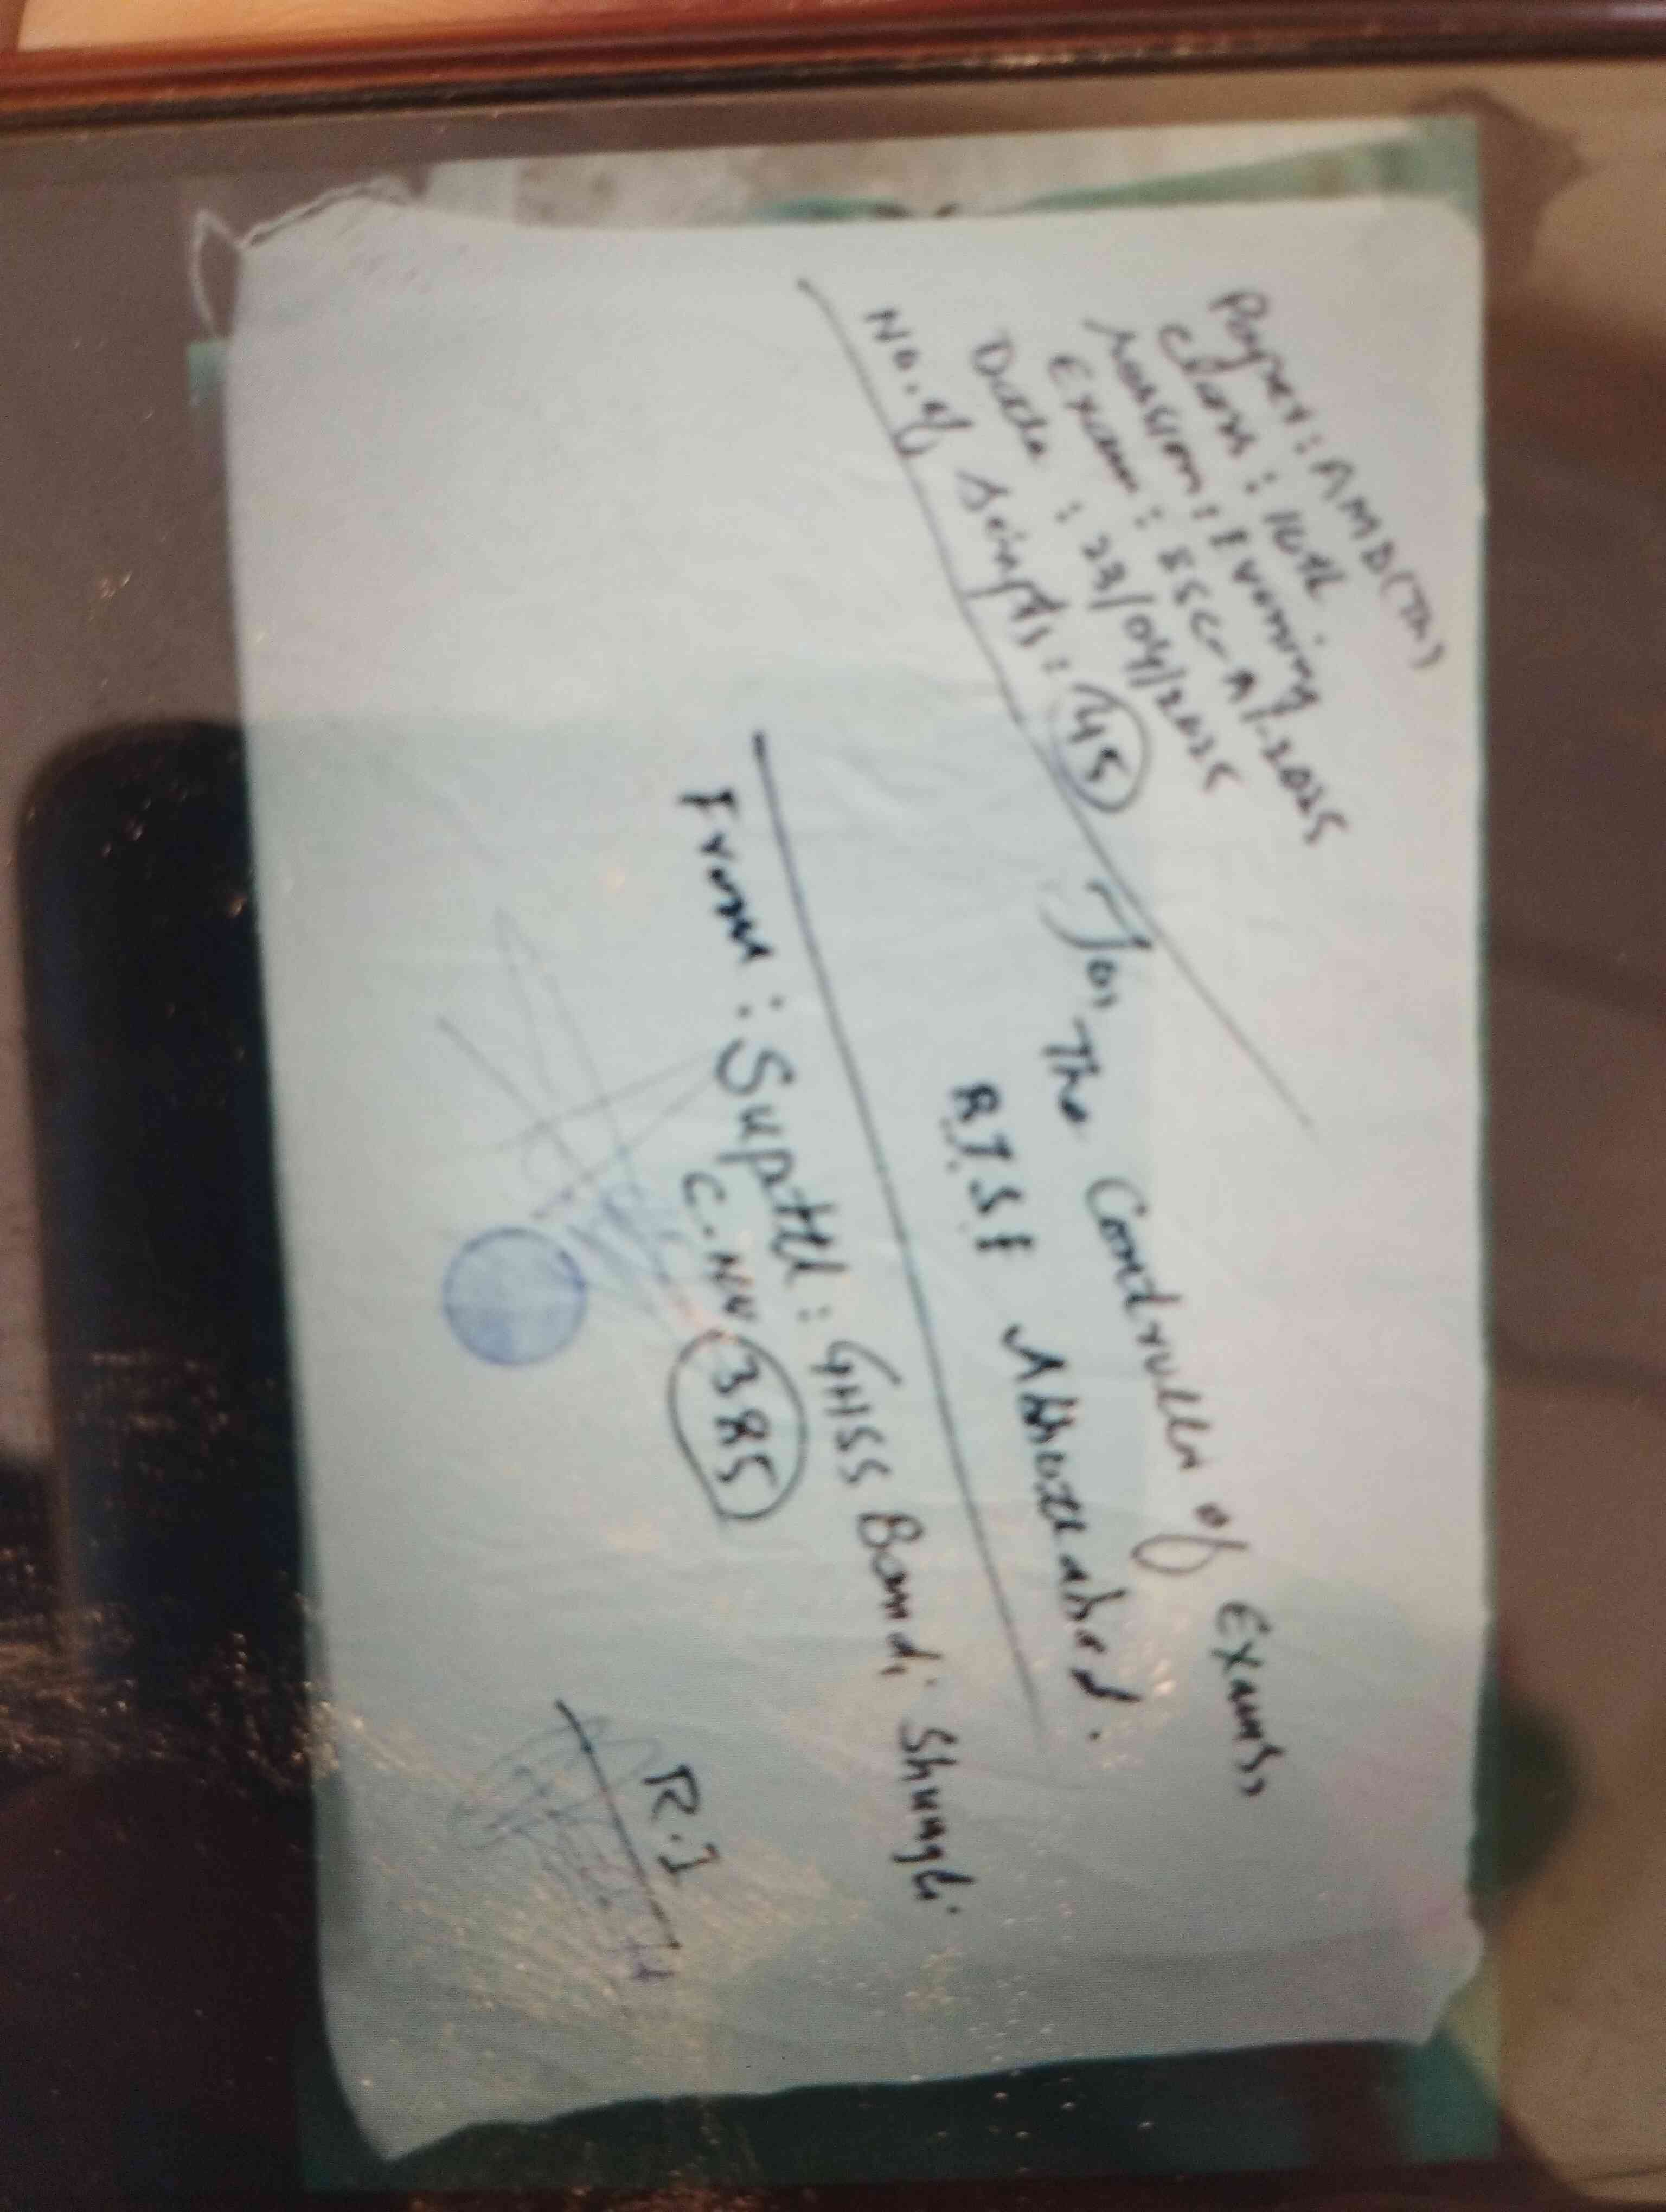 Paper : AMD (Th)
Class : 10th
Session : Evening
Exam : SSC-A1-2025
Date : 23/04/2025
No. of Scripts : 45
To, The Controller of Exams,
B.I.S.E Abbottabad.
From : Supdtt : GHSS Bandi Shungli.
C.No. 385
R.I